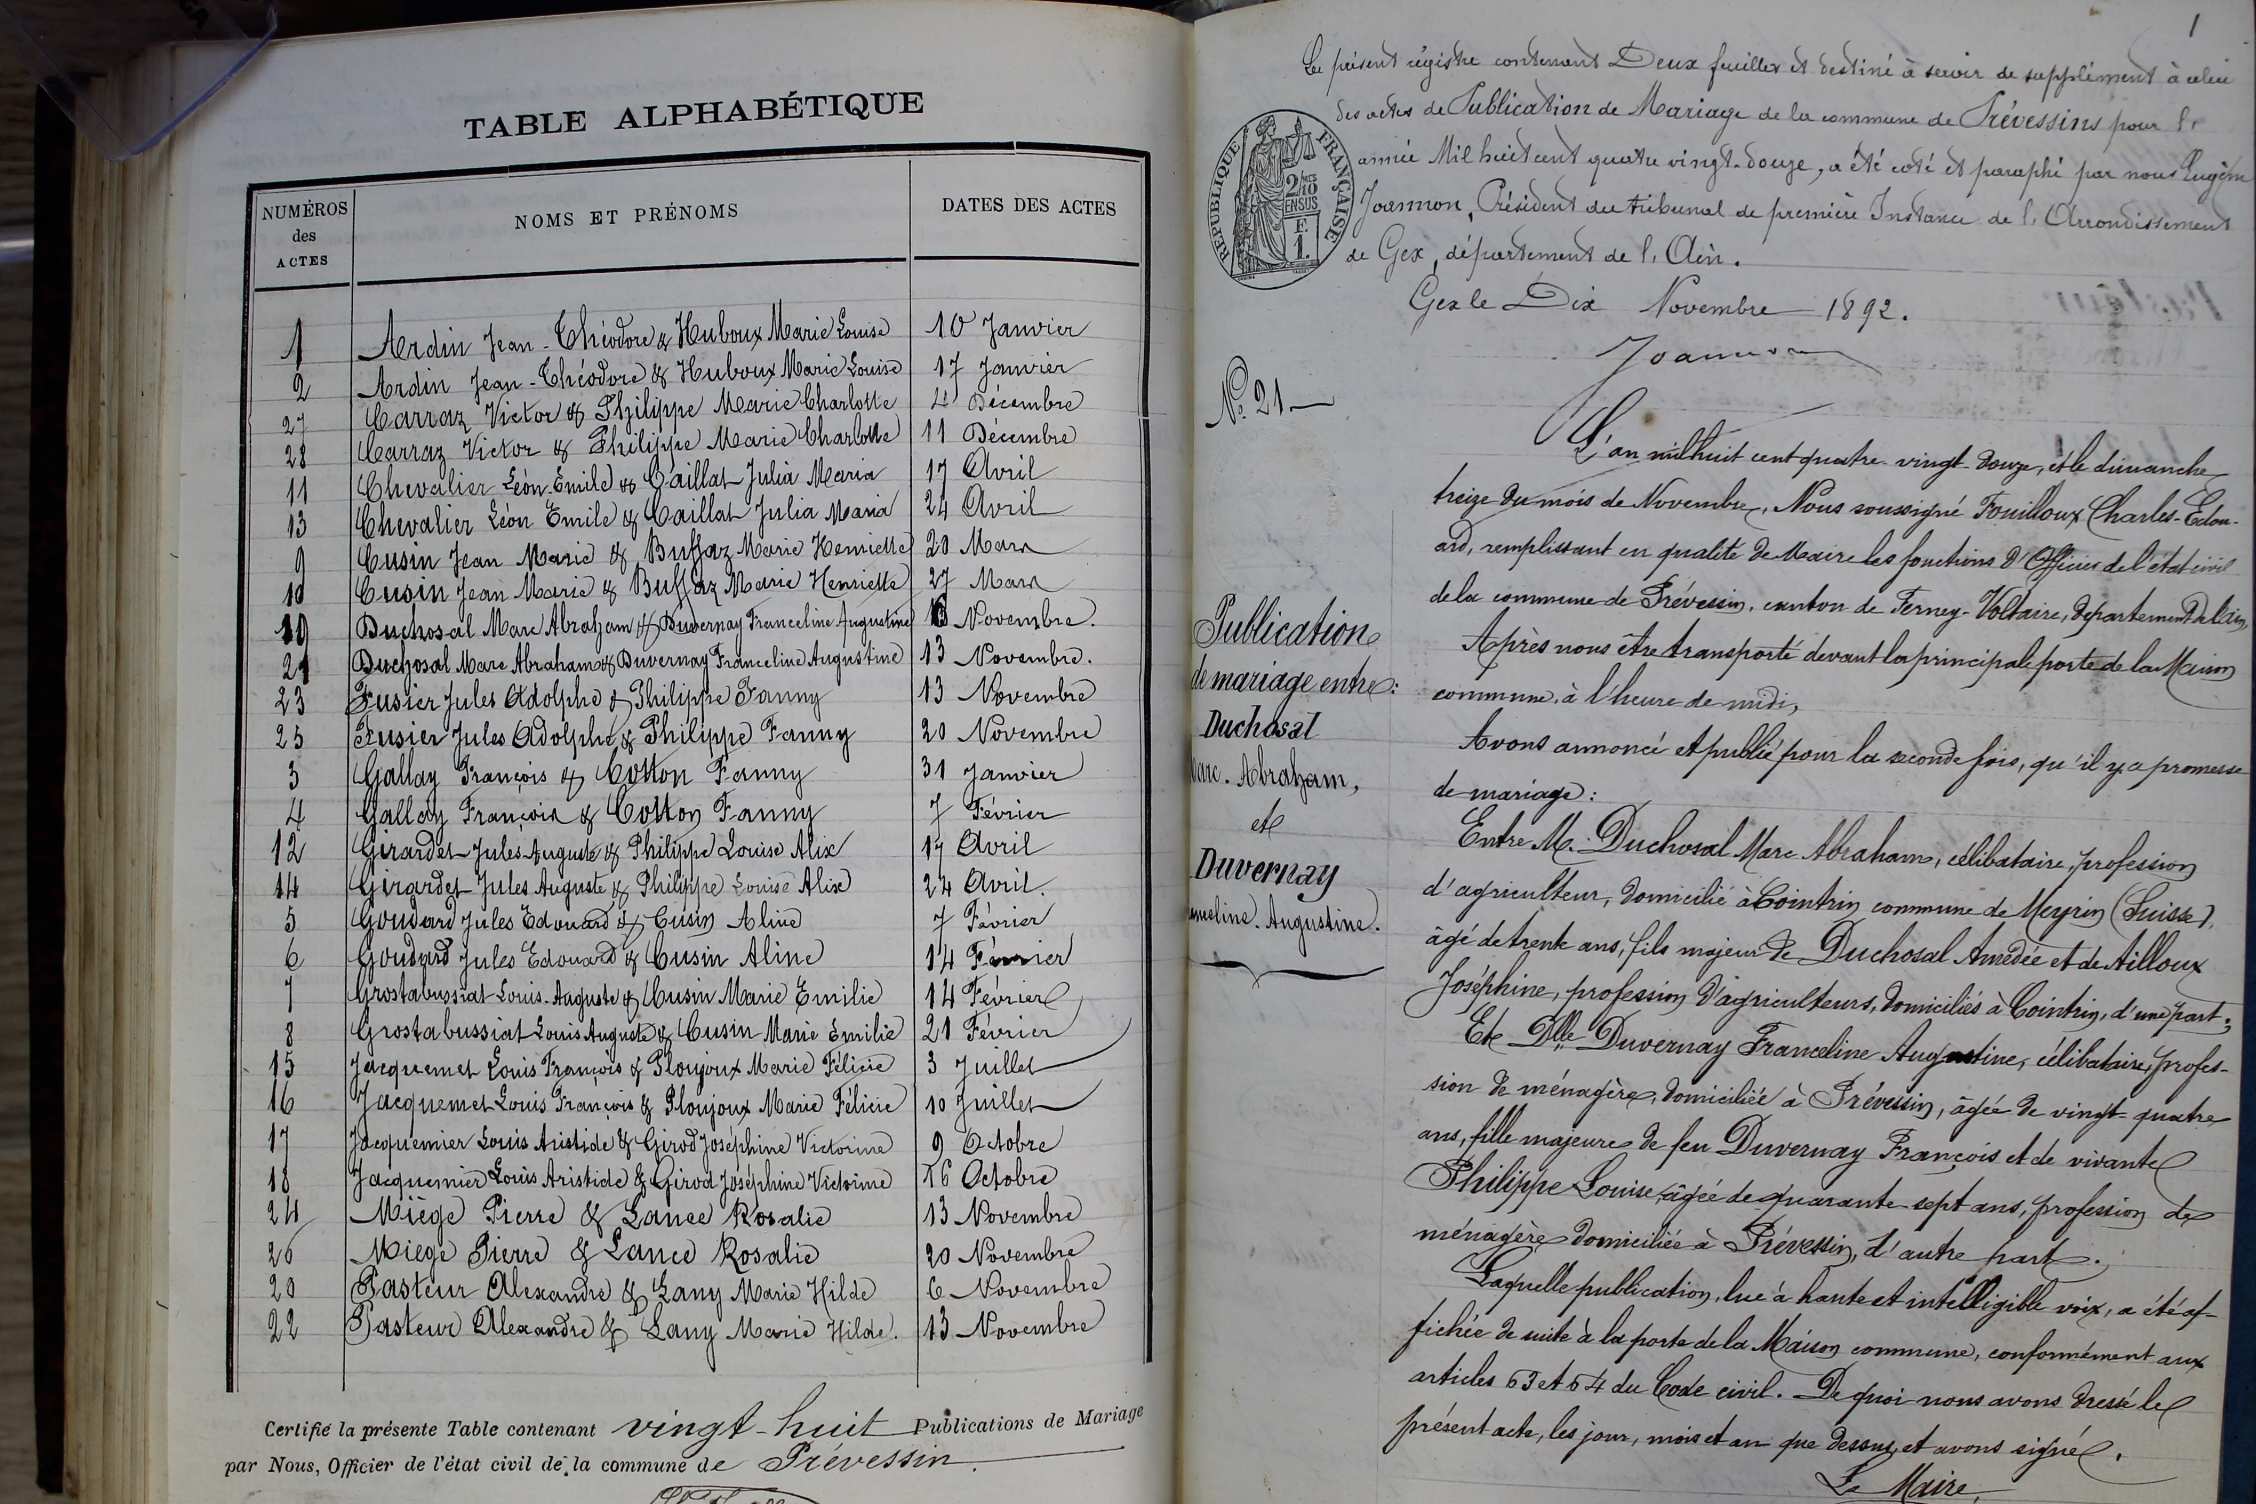 TABLE ALPHABÉTIQUE
NUMÉROS des ACTES NOMS ET PRÉNOMS DATES DES ACTES
1 Ardin Jean-Théodore & Huboux Marie Louise 10 Janvier
2 Ardin Jean-Théodore & Huboux Marie Louise 17 Janvier
27 Carraz Victor & Philippe Marie Charlotte 4 Décembre
28 Carraz Victor & Philippe Marie Charlotte 11 Décembre
11 Chevalier Léon Emile & Caillat Julia Maria 17 Avril
13 Chevalier Léon Emile & Caillat Julia Maria 24 Avril
9 Cusin Jean Marie & Buffaz Marie Henriette 20 Mars
10 Cusin Jean Marie & Buffaz Marie Henriette 27 Mars
19 Duchosal Marc Abraham & Duvernay Franceline Augustine Novembre.
21 Duchosal Marc Abraham & Duvernay Franceline Augustine 13 Novembre.
23 Fusier Jules Adolphe & Philippe Fanny 13 Novembre
25 Fusier Jules Adolphe & Philippe Fanny 20 Novembre
3 Gallay François & Cotton Fanny 31 Janvier
4 Gallay François & Cotton Fanny 7 Février
12 Girardet Jules Auguste & Philippe Louise Alix 17 Avril
14 Girardet Jules Auguste & Philippe Louise Alix 24 Avril.
5 Goudard Jules Edouard & Cusin Aline 7 Février
6 Goudard Jules Edouard & Cusin Aline 14 Février
7 Grostabussiat Louis-Auguste & Cusin Marie Emilie 14 Février
8 Grostabussiat Louis Auguste & Cusin Marie Emilie 21 Février
15 Jacquemet Louis François & Ploujoux Marie Félicie 3 Juillet
16 Jacquemet Louis François & Ploujoux Marie Félicie 10 Juillet
17 Jacquemier Louis Aristide & Girod Joséphine Victorine 9 Octobre
18 Jacquemier Louis Aristide & Girod Joséphine Victorine 16 Octobre
24 Miège Pierre & Lance Rosalie 13 Novembre
26 Miège Pierre & Lance Rosalie 20 Novembre
20 Pasteur Alexandre & Lany Marie Hilde 6 Novembre
22 Pasteur Alexandre & Lany Marie Hilde. 13 Novembre
Certifié la présente Table contenant vingt-huit Publications de Mariage
par Nous, Officier de l'état civil de la commune de Prévessin.
1
Le présent registre contenant Deux feuilles et destiné à servir de supplément à celui
des actes de Publication de Mariage de la commune de Prévessins pour l'
année Mil huit cent quatre vingt-douze, a été coté et paraphé par nous Eugène
Joannon, Président du tribunal de première Instance de l'Arrondissement
de Gex, département de l'Ain.
RÉPUBLIQUE FRANÇAISE
2/10 EN SUS
F. 1.
Gex le Dix Novembre 1892.
Joannon
No. 21
L'an mil huit cent quatre-vingt-douze, et le dimanche
treize du mois de Novembre, Nous soussigné Fouilloux Charles-Edou-
ard, remplissant en qualité de Maire les fonctions d'Officier de l'état civil
de la commune de Prévessin, canton de Ferney-Voltaire, département de l'Ain,
Après nous être transporté devant la principale porte de la Maison
commune, à l'heure de midi,
Avons annoncé et publié pour la seconde fois, qu'il y a promesse
de mariage:
Entre M. Duchosal Marc Abraham, célibataire, profession
d'agriculteur, domicilié à Cointrin commune de Meyrin (Suisse),
âgé de trente ans, fils majeur de Duchosal Amédée et de Ailloux
Joséphine, profession d'agriculteurs, domiciliés à Cointrin, d'une part;
Et Dlle Duvernay Franceline Augustine, célibataire, profes-
sion de ménagère, domiciliée à Prévessin, âgée de vingt-quatre
ans, fille majeure de feu Duvernay François et de vivante
Philippe Louise, âgée de quarante sept ans, profession de
ménagère domiciliée à Prévessin, d'autre part.
Laquelle publication, lue à haute et intelligible voix, a été af-
fichée de suite à la porte de la Maison commune, conformément aux
articles 63 et 64 du Code civil. De quoi nous avons dressé le
présent acte, les jour, mois et an que dessus, et avons signé.
Le Maire,
Publication
de mariage entre:
Duchosal
Marc. Abraham,
et
Duvernay
Franceline. Augustine.